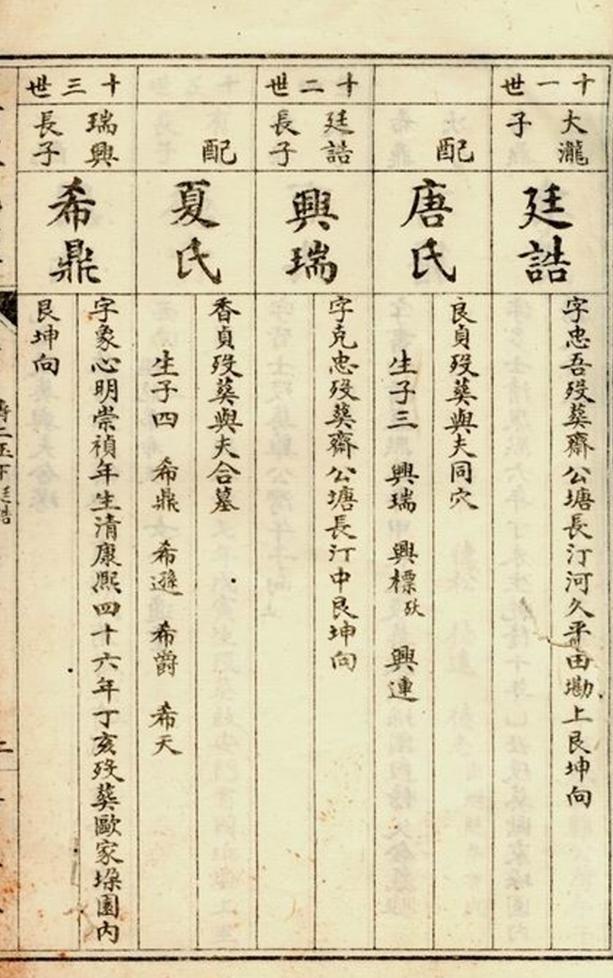 十一世
大瀧
子
廷誥
字忠吾歿葬齋公塘長汀河久平田墈上艮坤向
配
唐氏
良貞歿葬與夫同穴
生子三 興瑞 興標殀 興連
十二世
廷誥
長子
興瑞
字克忠歿葬齋公塘長汀中艮坤向
配
夏氏
香貞歿葬與夫合墓
生子四 希鼎 希遜 希爵 希天
十三世
瑞興
長子
希鼎
字象心明崇禎年生清康熙四十六年丁亥歿葬歐家垛園內
艮坤向